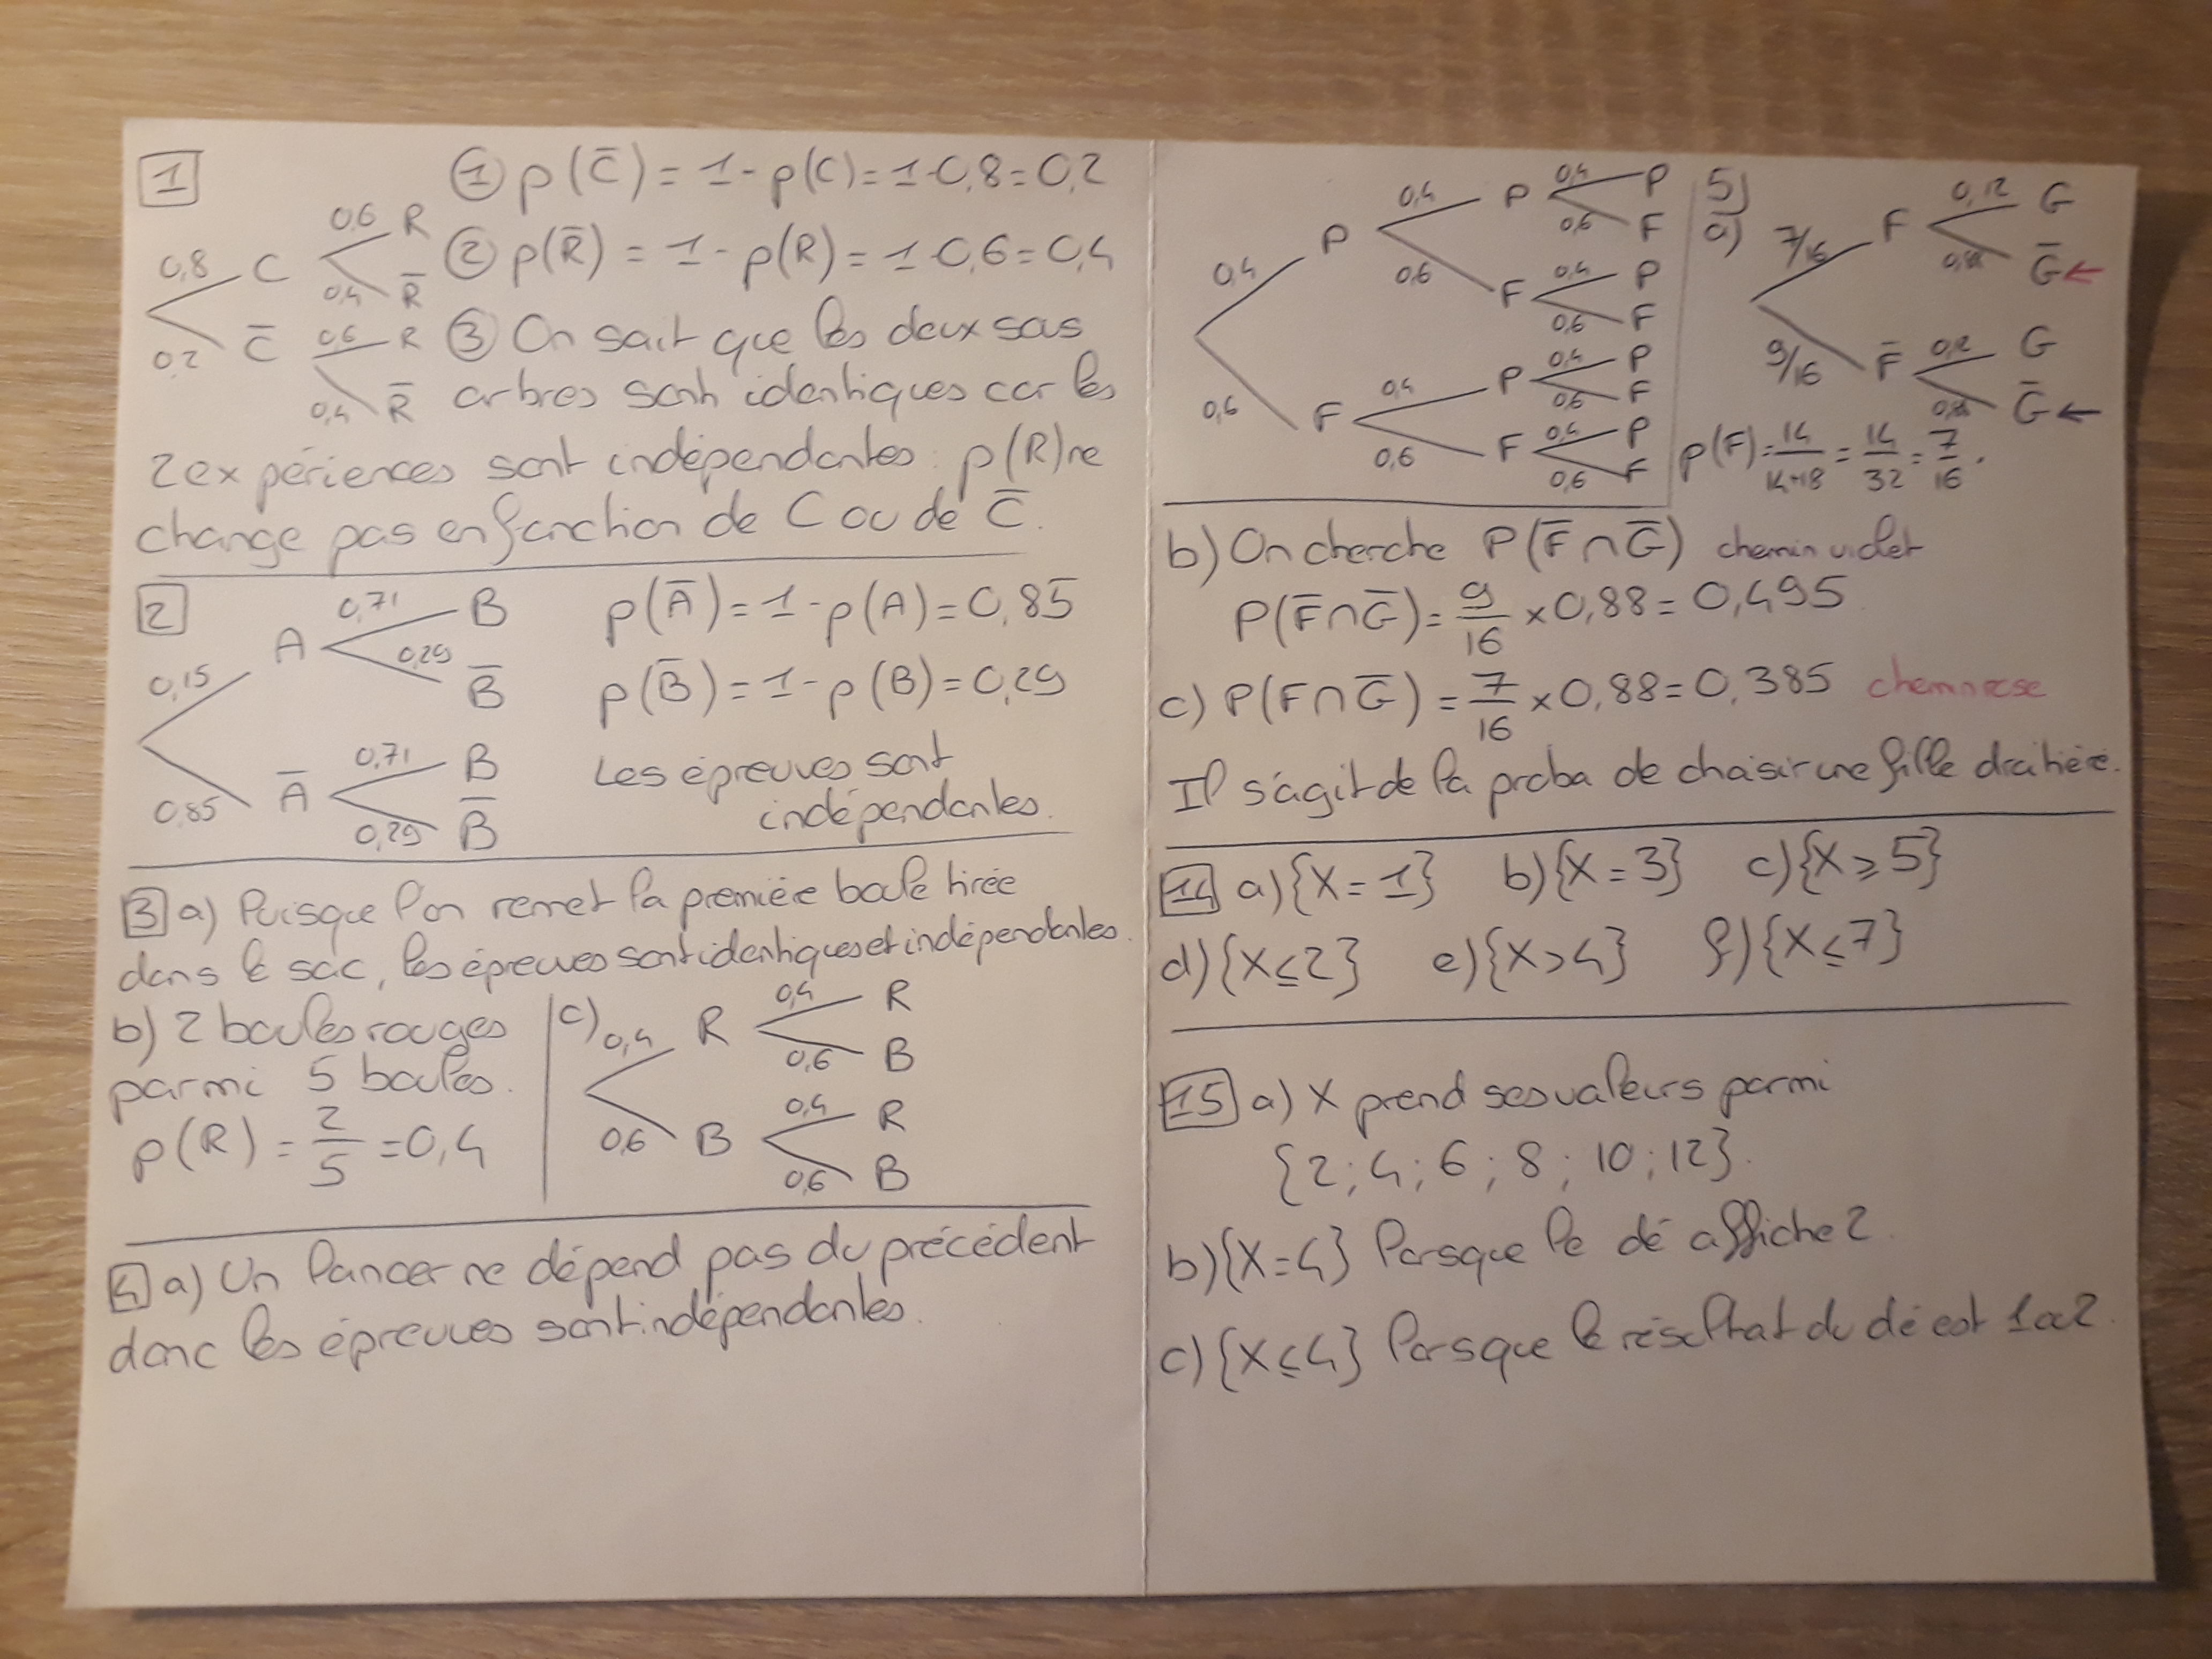 1
① p(C̅) = 1 - p(C) = 1 - 0,8 = 0,2
0,8 C 0,6 R
0,4 R̅
0,2 C̅ 0,6 R
0,4 R̅
② p(R̅) = 1 - p(R) = 1 - 0,6 = 0,4
③ On sait que les deux sous
arbres sont identiques car les
2 expériences sont indépendantes : p(R) ne
change pas en fonction de C ou de C̅.
2
0,15 A 0,71 B
0,29 B̅
0,85 A̅ 0,71 B
0,29 B̅
p(A̅) = 1 - p(A) = 0,85
p(B̅) = 1 - p(B) = 0,29
Les épreuves sont
indépendantes.
3 a) Puisque l'on remet la première boule tirée
dans le sac, les épreuves sont identiques et indépendantes.
b) 2 boules rouges
parmi 5 boules.
p(R) = 2/5 = 0,4
c) 0,4 R 0,4 R
0,6 B
0,6 B 0,4 R
0,6 B
4 a) Un lancer ne dépend pas du précédent
donc les épreuves sont indépendantes.
0,4 P 0,4 P 0,4 P
0,6 F
0,6 F 0,4 P
0,6 F
0,6 F 0,4 P 0,4 P
0,6 F
0,6 F 0,4 P
0,6 F
5)
a) 7/16 F 0,12 G
0,88 G̅ ←
9/16 F̅ 0,12 G
0,88 G̅ ←
p(F) = 14/14+18 = 14/32 = 7/16.
b) On cherche P(F̅ ∩ G̅) chemin violet
P(F̅ ∩ G̅) = 9/16 × 0,88 = 0,495
c) P(F ∩ G̅) = 7/16 × 0,88 = 0,385 chemin rose
Il s'agit de la proba de choisir une fille droitière.
14 a) {X = 1} b) {X = 3} c) {X ⩾ 5}
d) {X ⩽ 2} e) {X > 4} f) {X ⩽ 7}
15 a) X prend ses valeurs parmi
{2 ; 4 ; 6 ; 8 ; 10 ; 12}.
b) {X = 4} lorsque le dé affiche 2.
c) {X ⩽ 4} lorsque le résultat du dé est 1 ou 2.